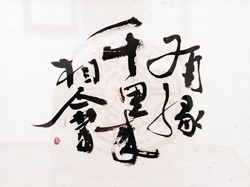 有緣
千里来
相會